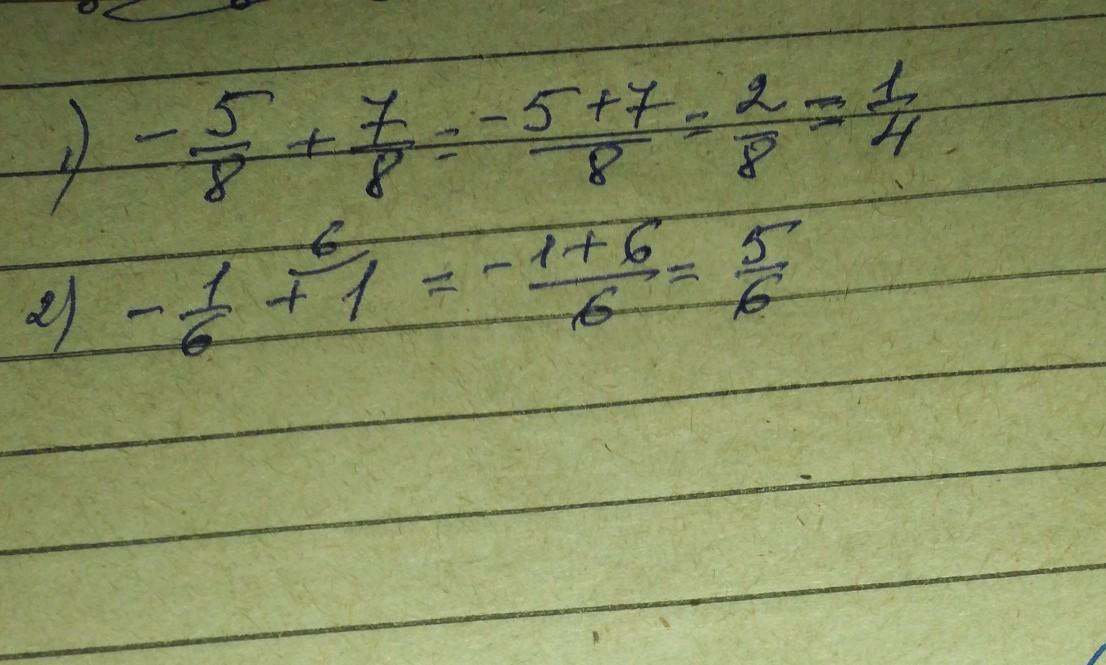 1) - 5/8 + 7/8 = -5+7/8 = 2/8 = 1/4
2) - 1/6 + 1^6 = -1+6/6 = 5/6